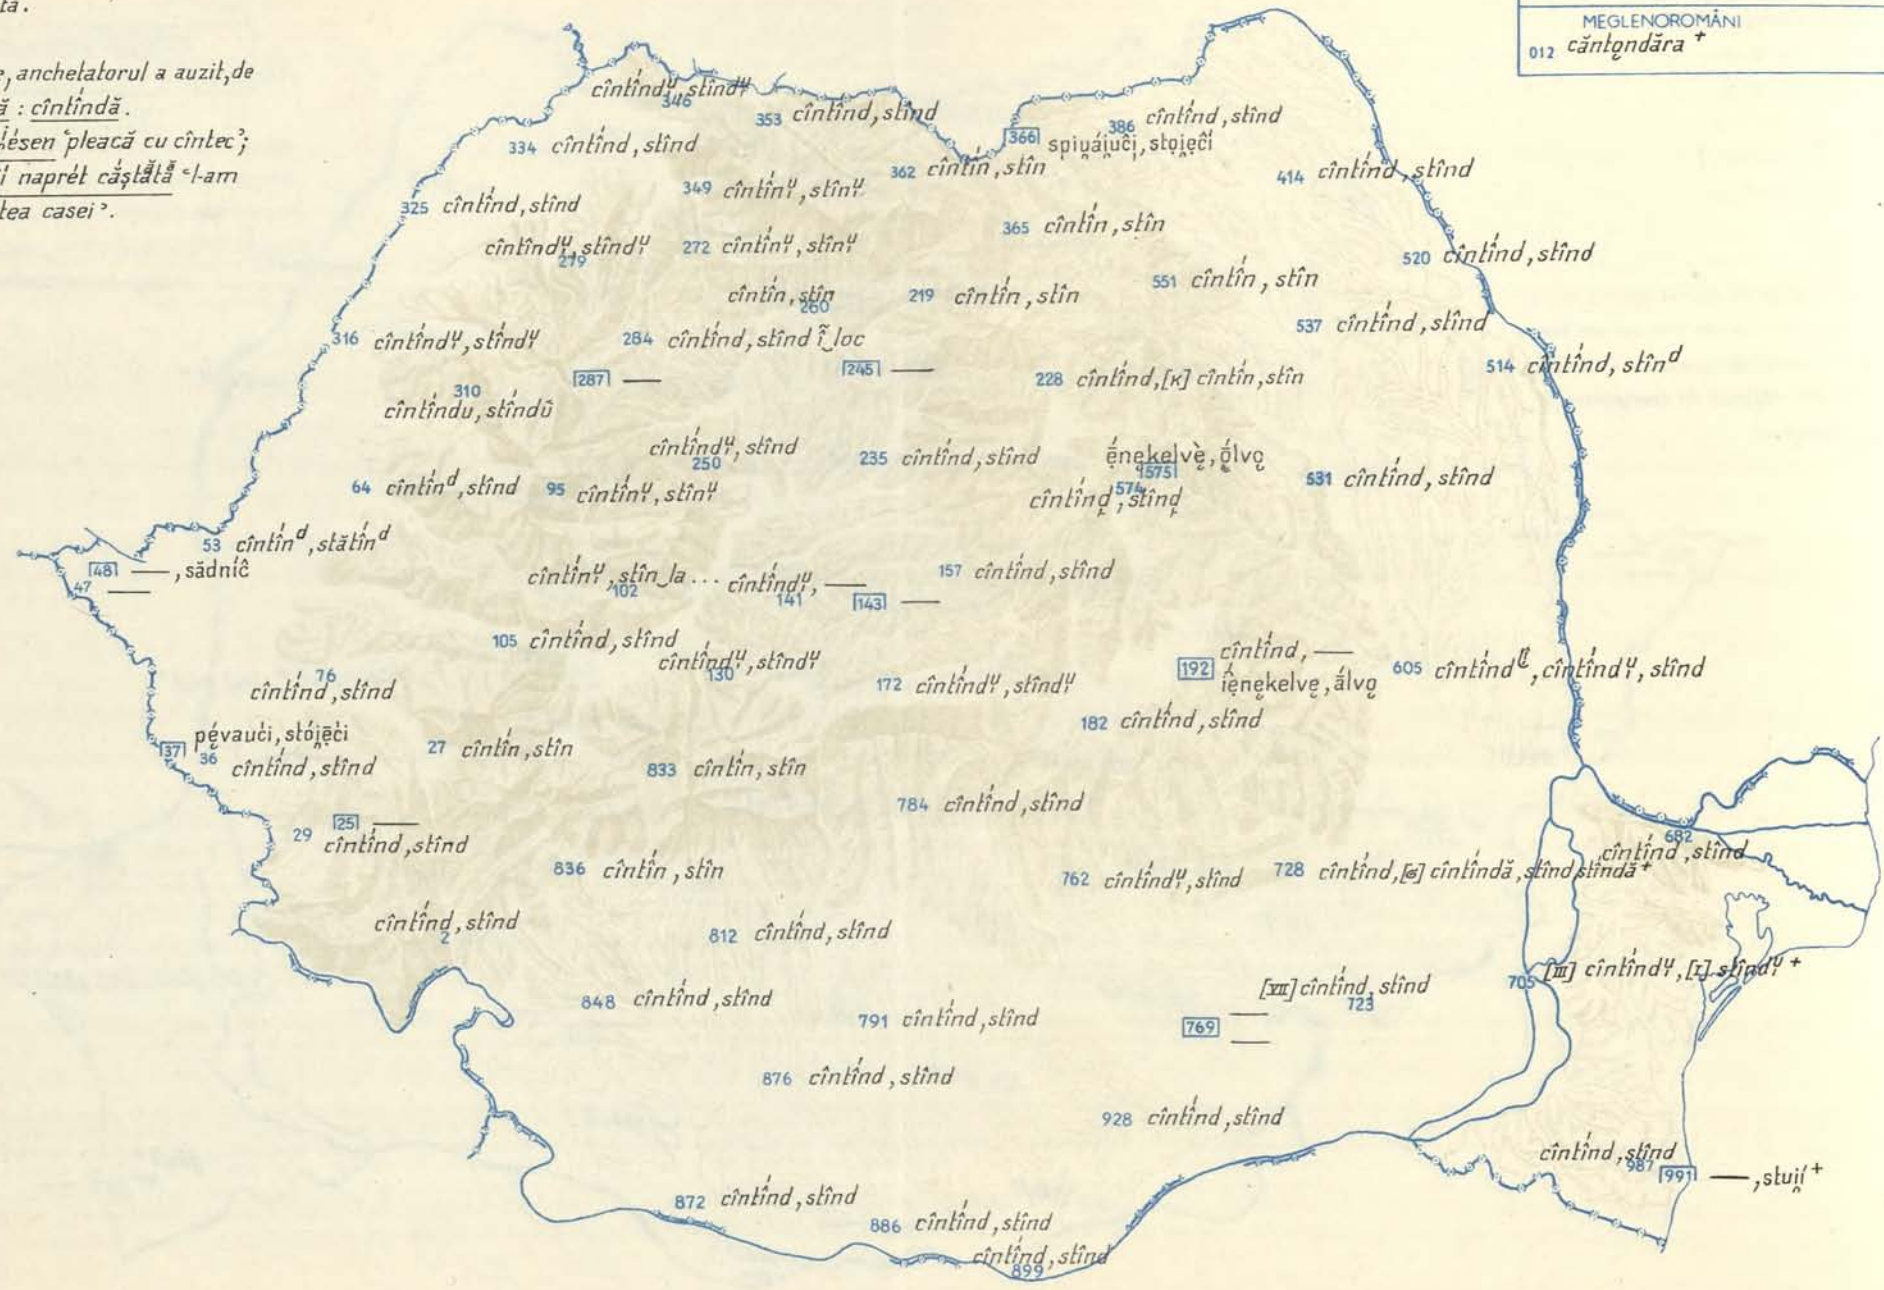 ta.
MEGLENOROMÂNI
012 căntǫndăra +
anchetatorul a auzit, de
ă : cîntîndă.
ésen ‘pleacă cu cîntec’;
naprét cắștắtă ‘l-am
tea casei’.
cîntî́ndᵘ̯, stîndᵘ̯
346
353 cîntî́nd, stînd
386 cîntî́nd, stînd
334 cîntî́nd, stînd
366 spiu̯ái̯uči̯, stoi̯ęčí
362 cîntî́n, stîn
414 cîntî́nd, stînd
349 cîntî́nᵘ̯, stînᵘ̯
325 cîntî́nd, stînd
365 cîntî́n, stîn
cîntîndᵘ̯, stîndᵘ̯
279
272 cîntî́nᵘ̯, stînᵘ̯
520 cîntî́nd, stînd
551 cîntî́n, stîn
cîntî́n, stîn
260
219 cîntî́n, stîn
537 cîntî́nd, stînd
316 cîntî́ndᵘ̯, stîndᵘ̯
284 cîntî́nd, stînd î̃‿loc
514 cîntî́nd, stînᵈ
287 —
245 —
228 cîntî́nd, [κ] cîntî́n, stîn
310
cîntî́ndu, stî́ndŭ
cîntî́ndᵘ̯, stînd
250
235 cîntî́nd, stînd
ḗnękelvè̜, ǭ́lvǫ
575
531 cîntî́nd, stînd
64 cîntî́nᵈ, stînd
95 cîntî́nᵘ̯, stînᵘ̯
574
cîntî́nd̥, stînd̥
53 cîntî́nᵈ, stătî́nᵈ
48 —, sădníĉ
47 —
cîntî́nᵘ̯, stîn‿la...
102
cîntî́ndᵘ̯, —
141
143 —
157 cîntî́nd, stînd
105 cîntî́nd, stînd
cîntî́ndᵘ̯, stîndᵘ̯
130
192 cîntî́nd, —
i̯ḗnękelvę, ā́lvǫ
605 cîntî́nd, cîntî́ndᵘ̯, stînd
76
cîntî́nd, stînd
172 cîntî́ndᵘ̯, stîndᵘ̯
182 cîntî́nd, stînd
37 pę́vaući, stói̯ę̄ći
36
cîntî́nd, stînd
27 cîntî́n, stîn
833 cîntî́n, stîn
784 cîntî́nd, stînd
25 —
29 cîntî́nd, stînd
682
cîntî́nd, stînd
836 cîntî́n, stîn
762 cîntî́ndᵘ̯, stînd
728 cîntî́nd, [ɢ] cîntî́ndă, stînd, stîndă +
cîntî́nd, stînd
2
812 cîntî́nd, stînd
705 [III] cîntî́ndᵘ̯, [I] stîndᵘ̯ +
[VII] cîntî́nd, stînd
723
848 cîntî́nd, stînd
791 cîntî́nd, stînd
769 —
—
876 cîntî́nd, stînd
928 cîntî́nd, stînd
cîntî́nd, stînd
987
991 —, stui̯í +
872 cîntî́nd, stînd
886 cîntî́nd, stînd
cîntî́nd, stînd
899